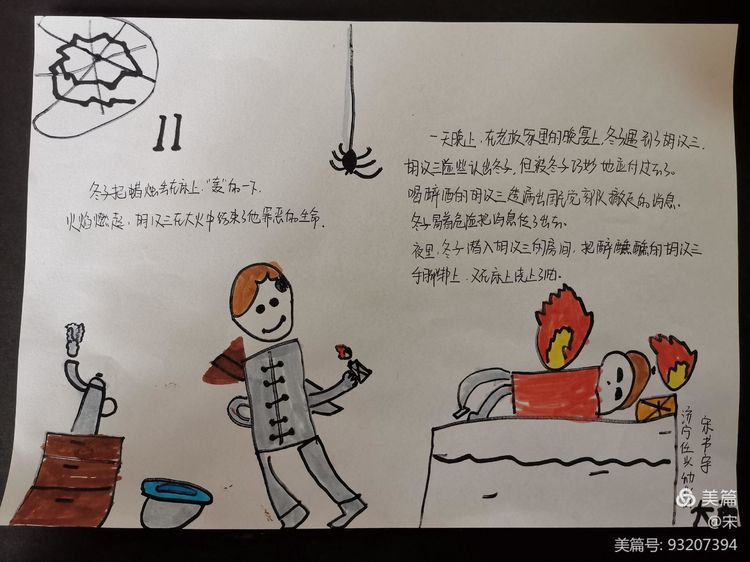 11
一天晚上，在老故家里的晚宴上，冬子遇到了胡汉三，
胡汉三险些认出冬子，但被冬子巧妙地应付过去了。
喝醉酒的胡汉三透漏出国党剿队撤走的消息，
冬子冒着危险把消息传了出去。
夜里，冬子潜入胡汉三的房间，把醉醺醺的胡汉三
手脚绑上，又在床上浇上了油。
冬子把蜡烛丢在床上，“轰”的一下，
火焰燃起，胡汉三在大火中结束了他罪恶的生命。
宋书宇
济宁任兴幼
美篇
@宋
美篇号: 93207394